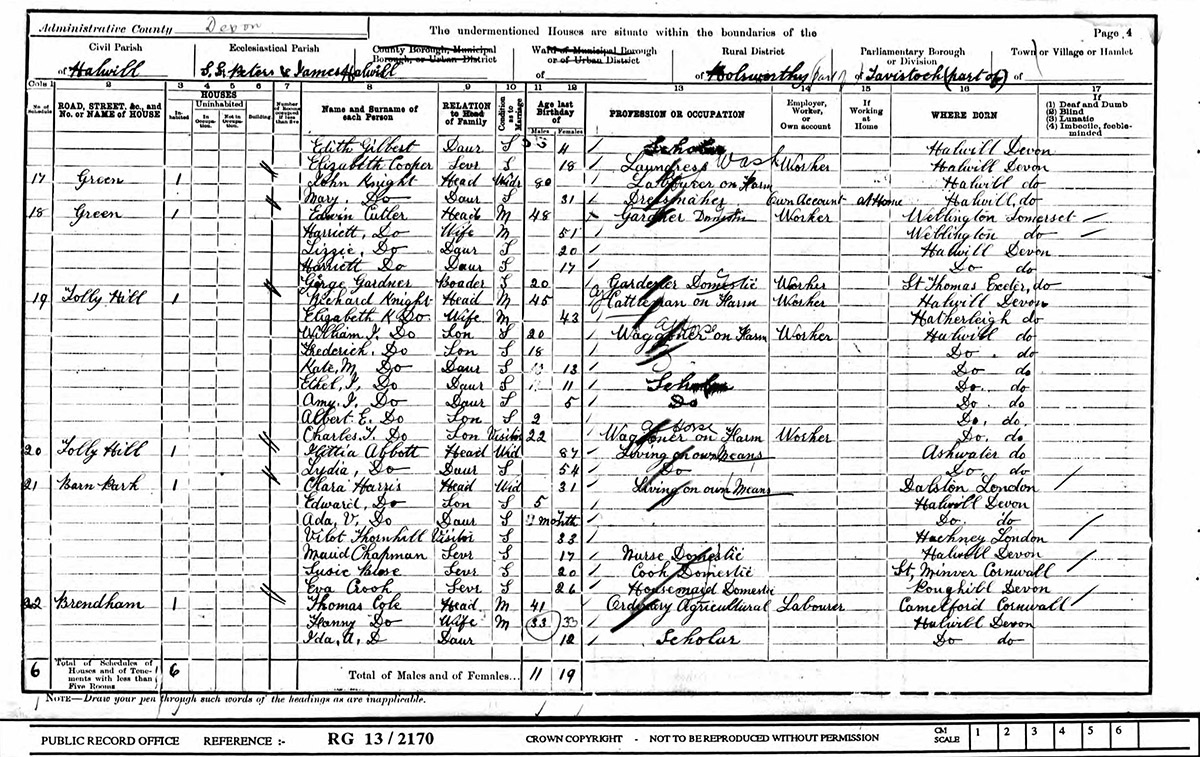 Administrative County Devon
The undermentioned Houses are situate within the boundaries of the
Page 4
Civil Parish of Halwill
Ecclesiastical Parish S.S. Peters & James Halwill
County Borough, Municipal Borough, or Urban District
Ward of Municipal Borough or of Urban District of
Rural District of Holsworthy (part of)
Parliamentary Borough or Division of Tavistock (part of)
Town or Village or Hamlet of
Cols 1 2 3 4 5 6 7 8 9 10 11 12 13 14 15 16 17
No. of Schedule
ROAD, STREET, &c., and No. or NAME of HOUSE
HOUSES
In-habited
Uninhabited
In Occupation
Not in Occupation
Building
Number of Rooms occupied if less than five
Name and Surname of each Person
RELATION to Head of Family
Condition as to Marriage
Age last Birthday of
Males Females
PROFESSION OR OCCUPATION
Employer, Worker, or Own account
If Working at Home
WHERE BORN
If (1) Deaf and Dumb (2) Blind (3) Lunatic (4) Imbecile, feeble-minded
Edith Gilbert Daur S 4 Halwill Devon
Elizabeth Cooper Serv S 18 Laundress Wash Worker Halwill Devon
17 Green 1 John Knight Head Widr 80 on Farm Halwill do
Mary, Do Daur S 31 Dressmaker Own Account at Home Halwill, do
18 Green 1 Edwin Cutler Head M 48 Gardner Domestic Worker Wellington Somerset
Harriett, Do Wife M 51 Wellington do
Lizzie, Do Daur S 20 Halwill Devon
Harriett Do Daur S 17 Do do
George Gardner Boader S 20 Gardener Domestic Worker St Thomas Exeter, do
19 Folly Hill 1 Richard Knight Head M 45 Cattleman on Farm Worker Halwill Devon
Elizabeth K Do Wife M 43 Hatherleigh do
William J. Do Son S 20 Waggoner on Farm Worker Halwill do
Frederick, Do Son S 18 Do. do
Kate, M Do Daur S 13 Do do
Ethel, J, Do Daur S 11 Scholar Do. do
Amy, J, Do Daur S 5 Do Do. do
Albert E. Do Son S 2 Do. do.
Charles J. Do Son Visitor 22 Waggoner Horse on Farm Worker Do. do
20 Folly Hill 1 Abbott Head Wid 87 Living on own Means Ashwater do
Lydia, Do Daur S 54 Do Do. do
21 Barn Park 1 Clara Harris Head Wid 31 Living on own Means Dalston London
Edward, Do Son S 5 Halwill Devon
Ada, V, Do Daur S Month Do. do
Thornhill Visitor S 33 Hackney London
Maud Chapman Serv S 17 Nurse Domestic Halwill Devon
Susie Serv S 20 Cook Domestic St, Minver Cornwall
Eva Crook Serv S 26 Housemaid Domestic Poughill Devon
22 Brendham 1 Thomas Cole Head M 41 Ordinary Agricultural Labourer Camelford Cornwall
Fanny Do Wife M 33 33 Halwill Devon
Ida, A, D Daur 12 Scholar Do do
6 Total of Schedules of Houses and of Tenements with less than Five Rooms 6 Total of Males and of Females... 11 19
NOTE—Draw your pen through such words of the headings as are inapplicable.
PUBLIC RECORD OFFICE REFERENCE :- RG 13 / 2170 CROWN COPYRIGHT - NOT TO BE REPRODUCED WITHOUT PERMISSION CM SCALE 1 2 3 4 5 6